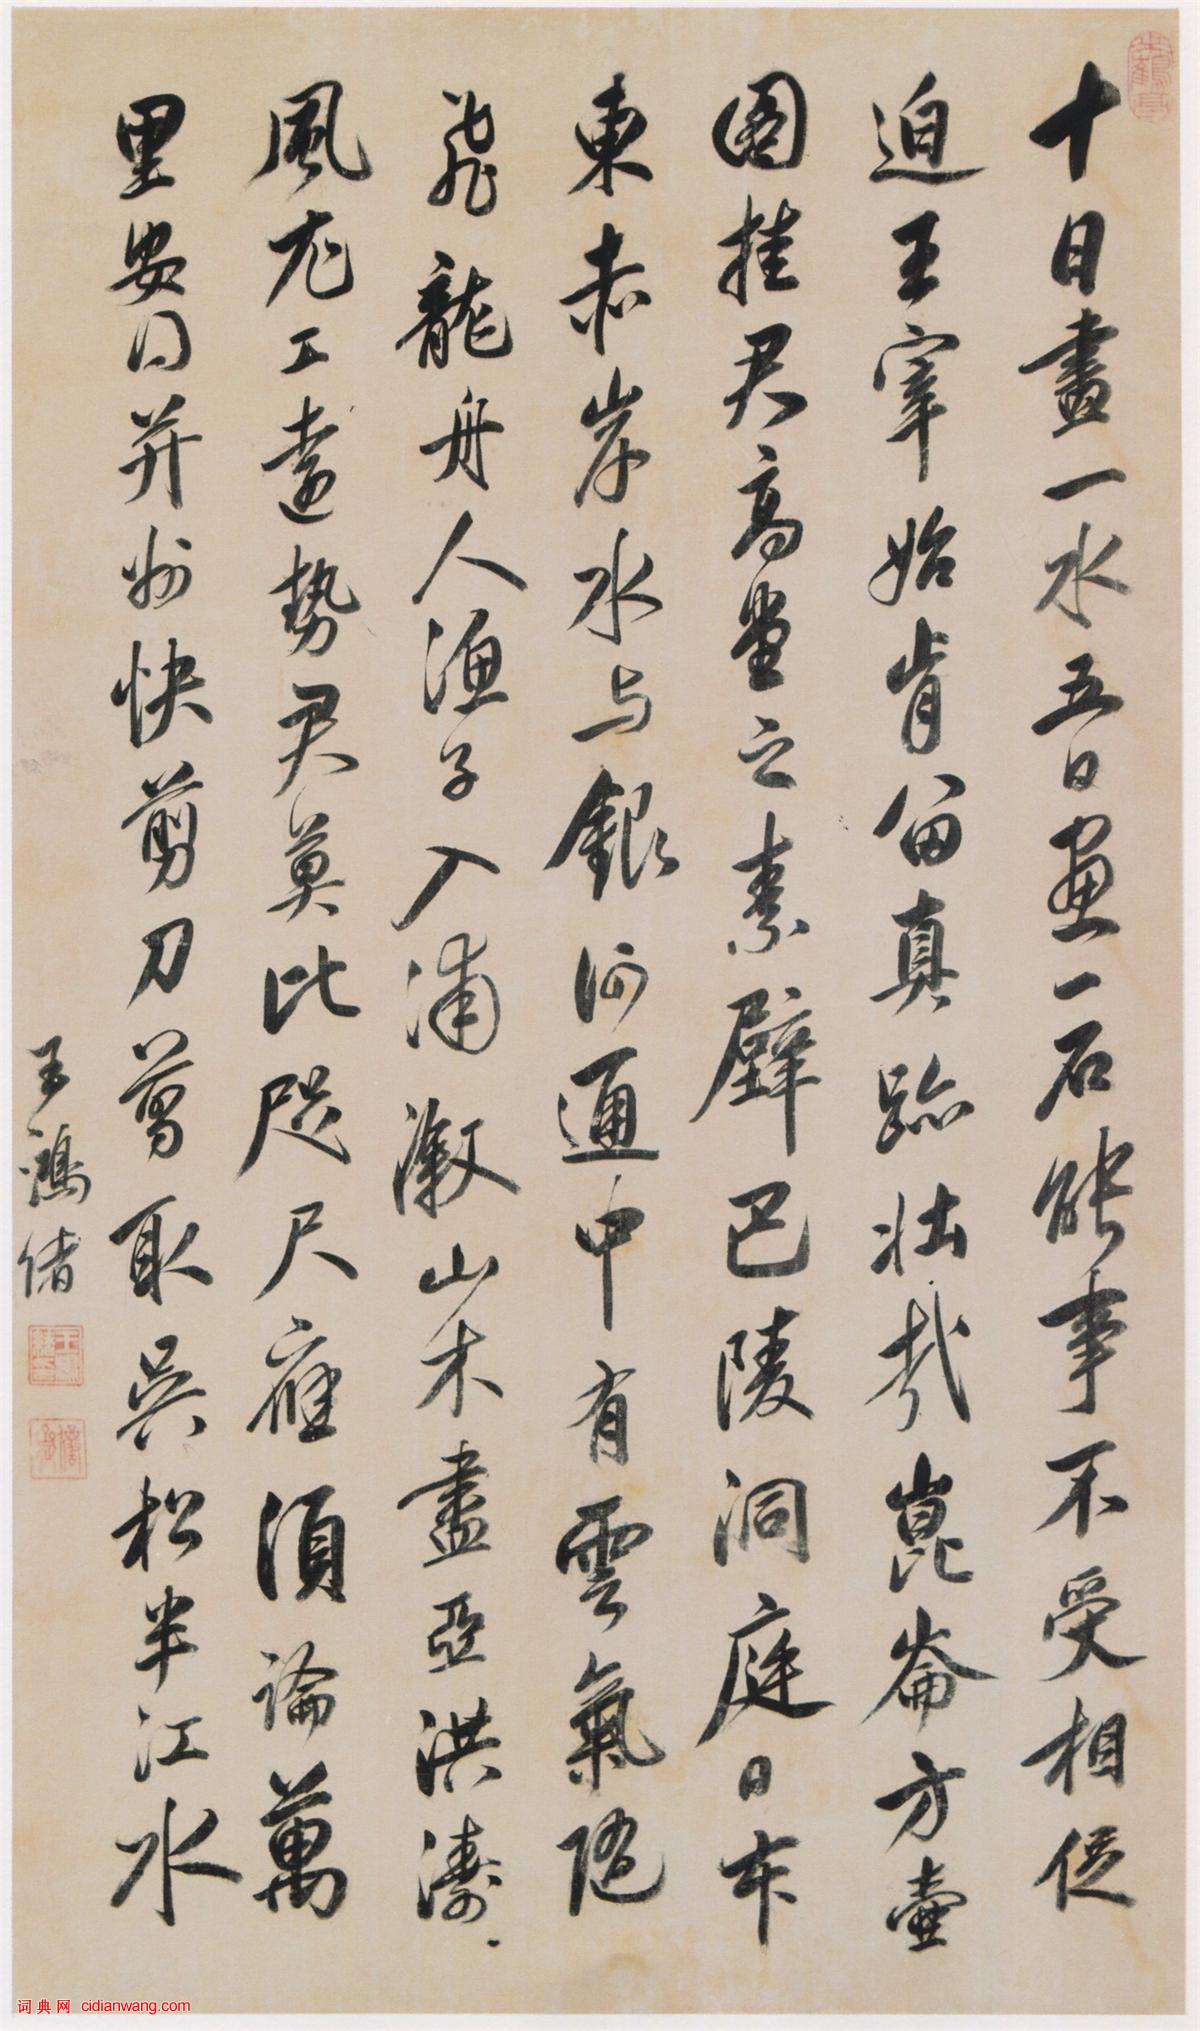 十日畫一水五日畫一石能事不受相促
迫王宰始肯留真跡壯哉崑崙方壺
圖挂君高堂之素壁巴陵洞庭日本
東赤岸水與銀河通中有雲氣隨
飛龍舟人漁子入浦漵山木盡亞洪濤
風尤工遠勢君莫比咫尺應須論萬
里安得并州快剪刀剪取吳松半江水
王鴻緒
词典网 cidianwang.com